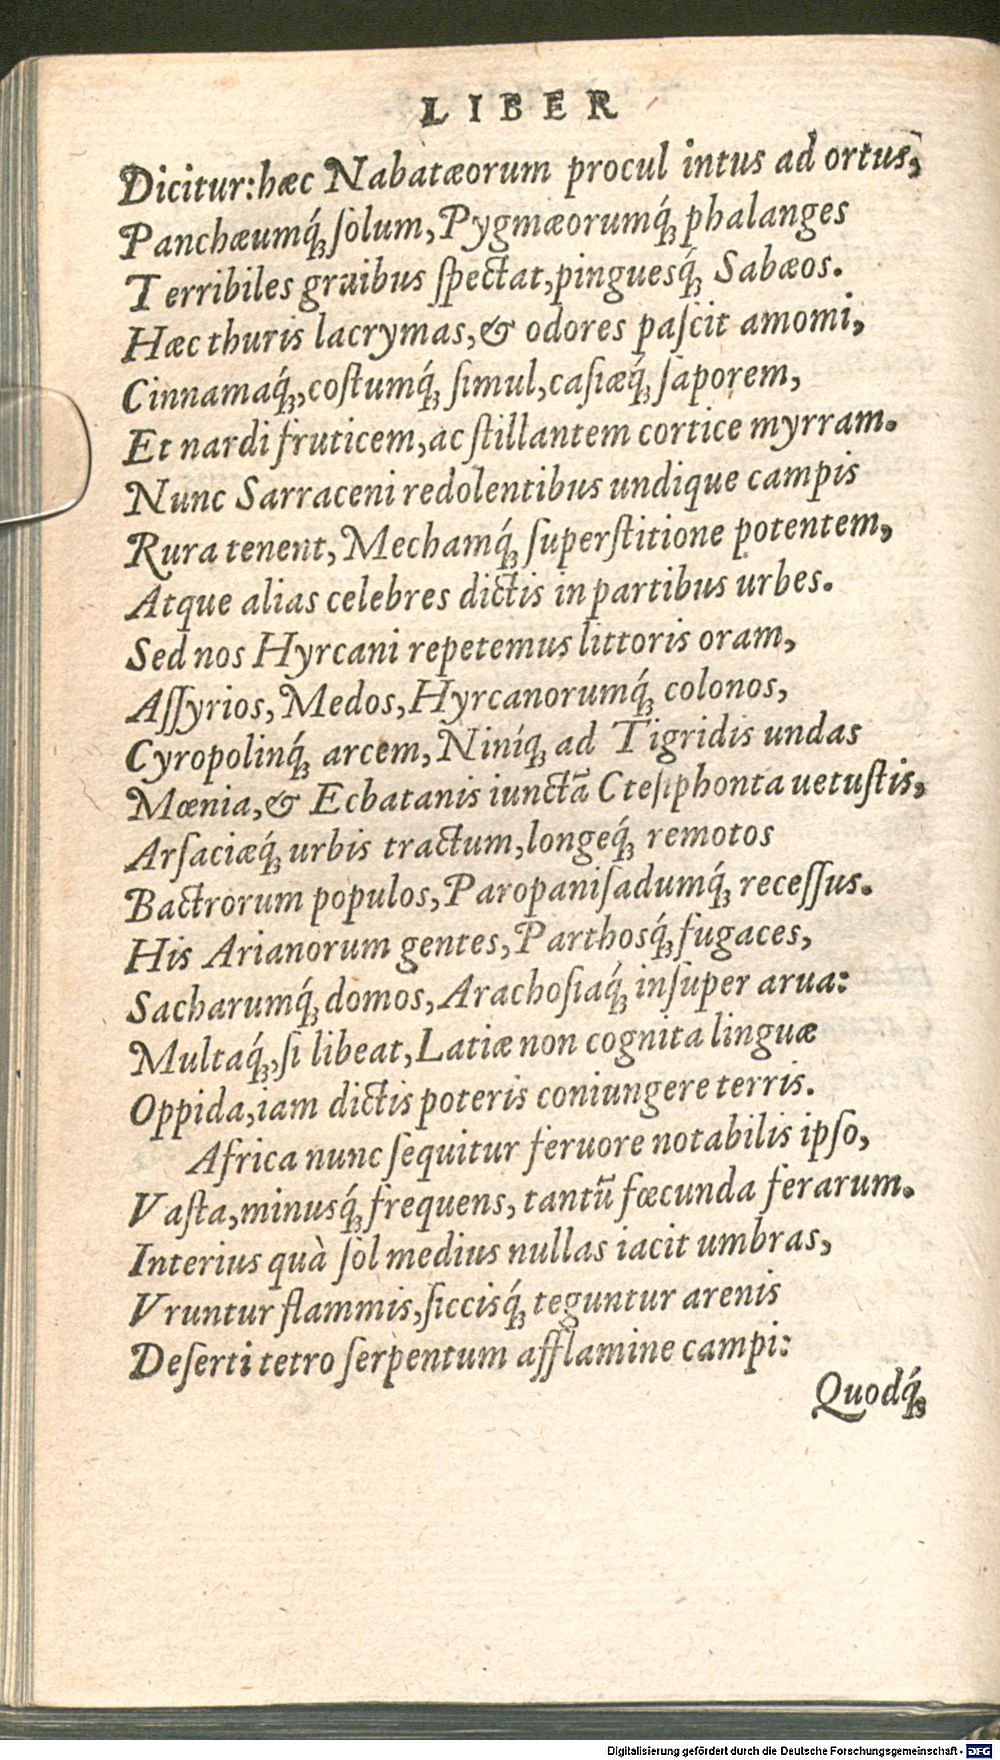 LIBER
Dicitur:hæc Nabatæorum procul intus ad ortus,
Panchæumq́ꝫ ſolum,Pygmæorumq́ꝫ phalanges
Terribiles gruibus ſpectat,pinguesq́ꝫ Sabæos.
Hæc thuris lacrymas,& odores paſcit amomi,
Cinnamaq́ꝫ,coſtumq́ꝫ ſimul,caſiæq́ꝫ ſaporem,
Et nardi fruticem,ac ſtillantem cortice myrram.
Nunc Sarraceni redolentibus undique campis
Rura tenent,Mechamq́ꝫ ſuperſtitione potentem,
Atque alias celebres dictis in partibus urbes.
Sed nos Hyrcani repetemus littoris oram,
Aſſyrios,Medos,Hyrcanorumq́ꝫ colonos,
Cyropolinq́ꝫ arcem,Niníqꝫ ad Tigridis undas
Mœnia,& Ecbatanis iunctā Cteſiphonta uetuſtis,
Arſaciæq́ꝫ urbis tractum,longeq́ꝫ remotos
Bactrorum populos,Paropaniſadumq́ꝫ receſſus.
His Arianorum gentes,Parthosq́ꝫ fugaces,
Sacharumq́ꝫ domos,Arachoſiaq́ꝫ inſuper arua:
Multaq́ꝫ,ſi libeat,Latiæ non cognita linguæ
Oppida,iam dictis poteris coniungere terris.
Africa nunc ſequitur feruore notabilis ipſo,
Vaſta,minusq́ꝫ frequens, tantū fœcunda ferarum.
Interius quà ſol medius nullas iacit umbras,
Vruntur flammis,ſiccisq́ꝫ teguntur arenis
Deſerti tetro ſerpentum afflamine campi:
Quodq́ꝫ
Digitalisierung gefördert durch die Deutsche Forschungsgemeinschaft - DFG